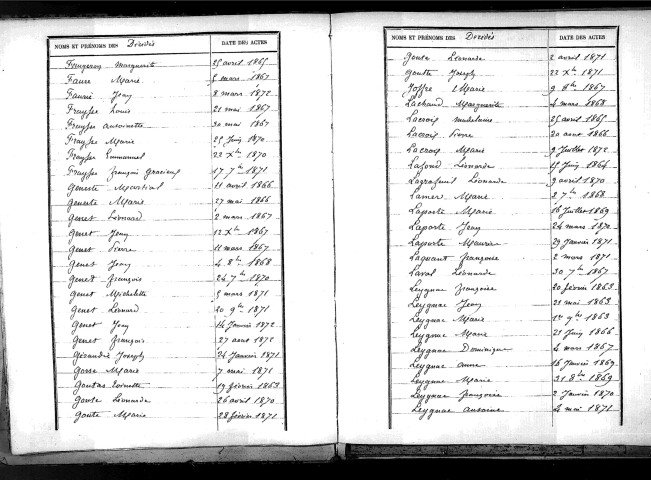 NOMS ET PRÉNOMS DES Décédés DATE DES ACTES
Faugeron Marguerite 25 avril 1865
Faure Marie 5 mars 1867
Faurie Jean 8 mars 1872
Faysse Louis 21 mai 1867
Faysse Antoinette 30 mai 1867
Faysse Marie 25 Juin 1870
Faysse Emmanuel 22 Xbre 1870
Faysse François 17 7bre 1871
Geneste Martial 11 avril 1866
Geneste Marie 27 mai 1866
Genet Léonard 2 mars 1867
Genet Jean 12 Xbre 1867
Genet Pierre 11 mars 1867
Genet Jean 4 8bre 1868
Genet François 24 7bre 1870
Genet Michelette 5 mars 1871
Genet Léonard 20 9bre 1871
Genet Jean 14 Janvier 1872
Genet François 27 aout 1872
Joseph 24 Janvier 1871
Gorse Marie 7 mai 1871
Antoinette 17 février 1863
Goute Léonarde 26 avril 1870
Goute Marie 28 février 1871
NOMS ET PRÉNOMS DES Décédés DATE DES ACTES
Goute Léonarde 2 avril 1871
Goutte Joseph 22 Xbre 1871
Joffre Marie 9 8bre 1867
Lachaud Marguerite 4 mars 1868
Lacroix Madeleine 25 avril 1865
Lacroix Pierre 20 aout 1866
Lacroix Marie 9 Juillet 1872
Lafond Léonarde 15 Juin 1866
Léonarde 9 avril 1870
Lamer Marie 2 7bre 1868
Laporte Marie 16 Juillet 1869
Laporte Jean 24 mars 1870
Laporte Maurice 29 Janvier 1871
Laquant Françoise 2 mars 1871
Laval Léonarde 30 7bre 1867
Leygnac Françoise 20 février 1863
Leygnac Jean 21 mai 1863
Leygnac Marie 1er 9bre 1863
Leygnac Marie 21 Juin 1866
Leygnac Dominique 4 mars 1867
Leygnac Anne 16 Janvier 1869
Leygnac Marie 31 8bre 1869
Leygnac Françoise 2 Janvier 1870
Leygnac Antoine 4 mai 1871